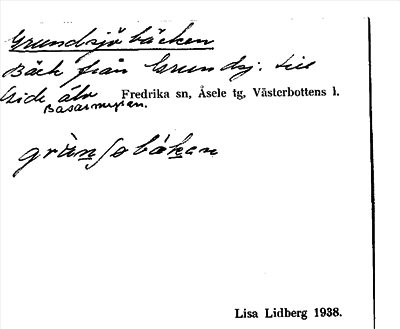 Grundsjöbäcken
Bäck från Grundsj. till
Gide älv Fredrika sn, Åsele tg, Västerbottens l.
Basarmyran.
Lisa Lidberg 1938.